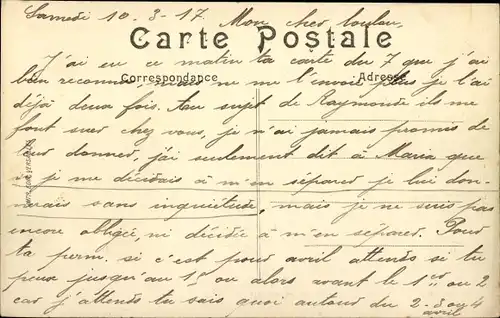 Samedi 10-3-17. Mon cher loulou,
Carte Postale
J'ai eu ce matin ta carte du 7 que j'ai
Correspondance
Adresse
bien reconnue, mais ne me l'envoie plus je l'ai
déjà deux fois. Au sujet de Raymonde ils me
font suer chez vous, je n'ai jamais promis de
leur donner, j'ai seulement dit à Maria que
si je me décidais à m'en séparer je lui don-
nerais sans inquiétude, mais je ne suis pas
encore obligée, ni décidée à m'en séparer. Pour
ta perm. si c'est pour avril attends si tu
peux jusqu'au 1er ou alors avant le 1er ou 2
car j'attends tu sais quoi autour du 2-3 ou 4
avril